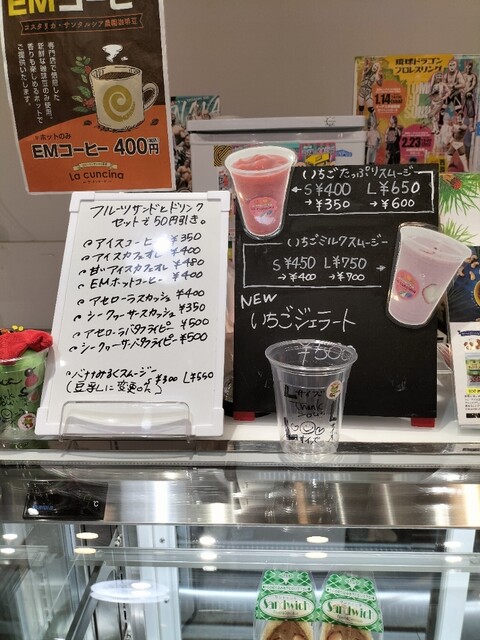 EMコーヒー
コスタリカ・サンタルシア農園珈琲豆
香りも楽しめるホットで
ご提供いたします。
※ホットのみ
EMコーヒー 400円
La cuncina
フルーツサンドとドリンク
セットで50円引き。
アイスコーヒー ¥350
アイスカフェオレ ¥400
甘いアイスカフェオレ ¥480
EMホットコーヒー ¥400
アセローラスカッシュ ¥400
シークヮーサースカッシュ ¥350
アセローラバタフライピー ¥500
シークヮーサーバタフライピー ¥500
バナナみるくスムージー ¥300 L¥550
(豆乳に変更OK)
いちごたっぷりスムージー
S¥400 L¥650
→¥350 →¥600
いちごミルクスムージー
S¥450 L¥750
→¥400 →¥700
NEW
いちごジェラート
¥500
Lサイズ
Thank
琉球ドラゴン
プロレスリング
1.14
2.23
Sandwich
Sandwich